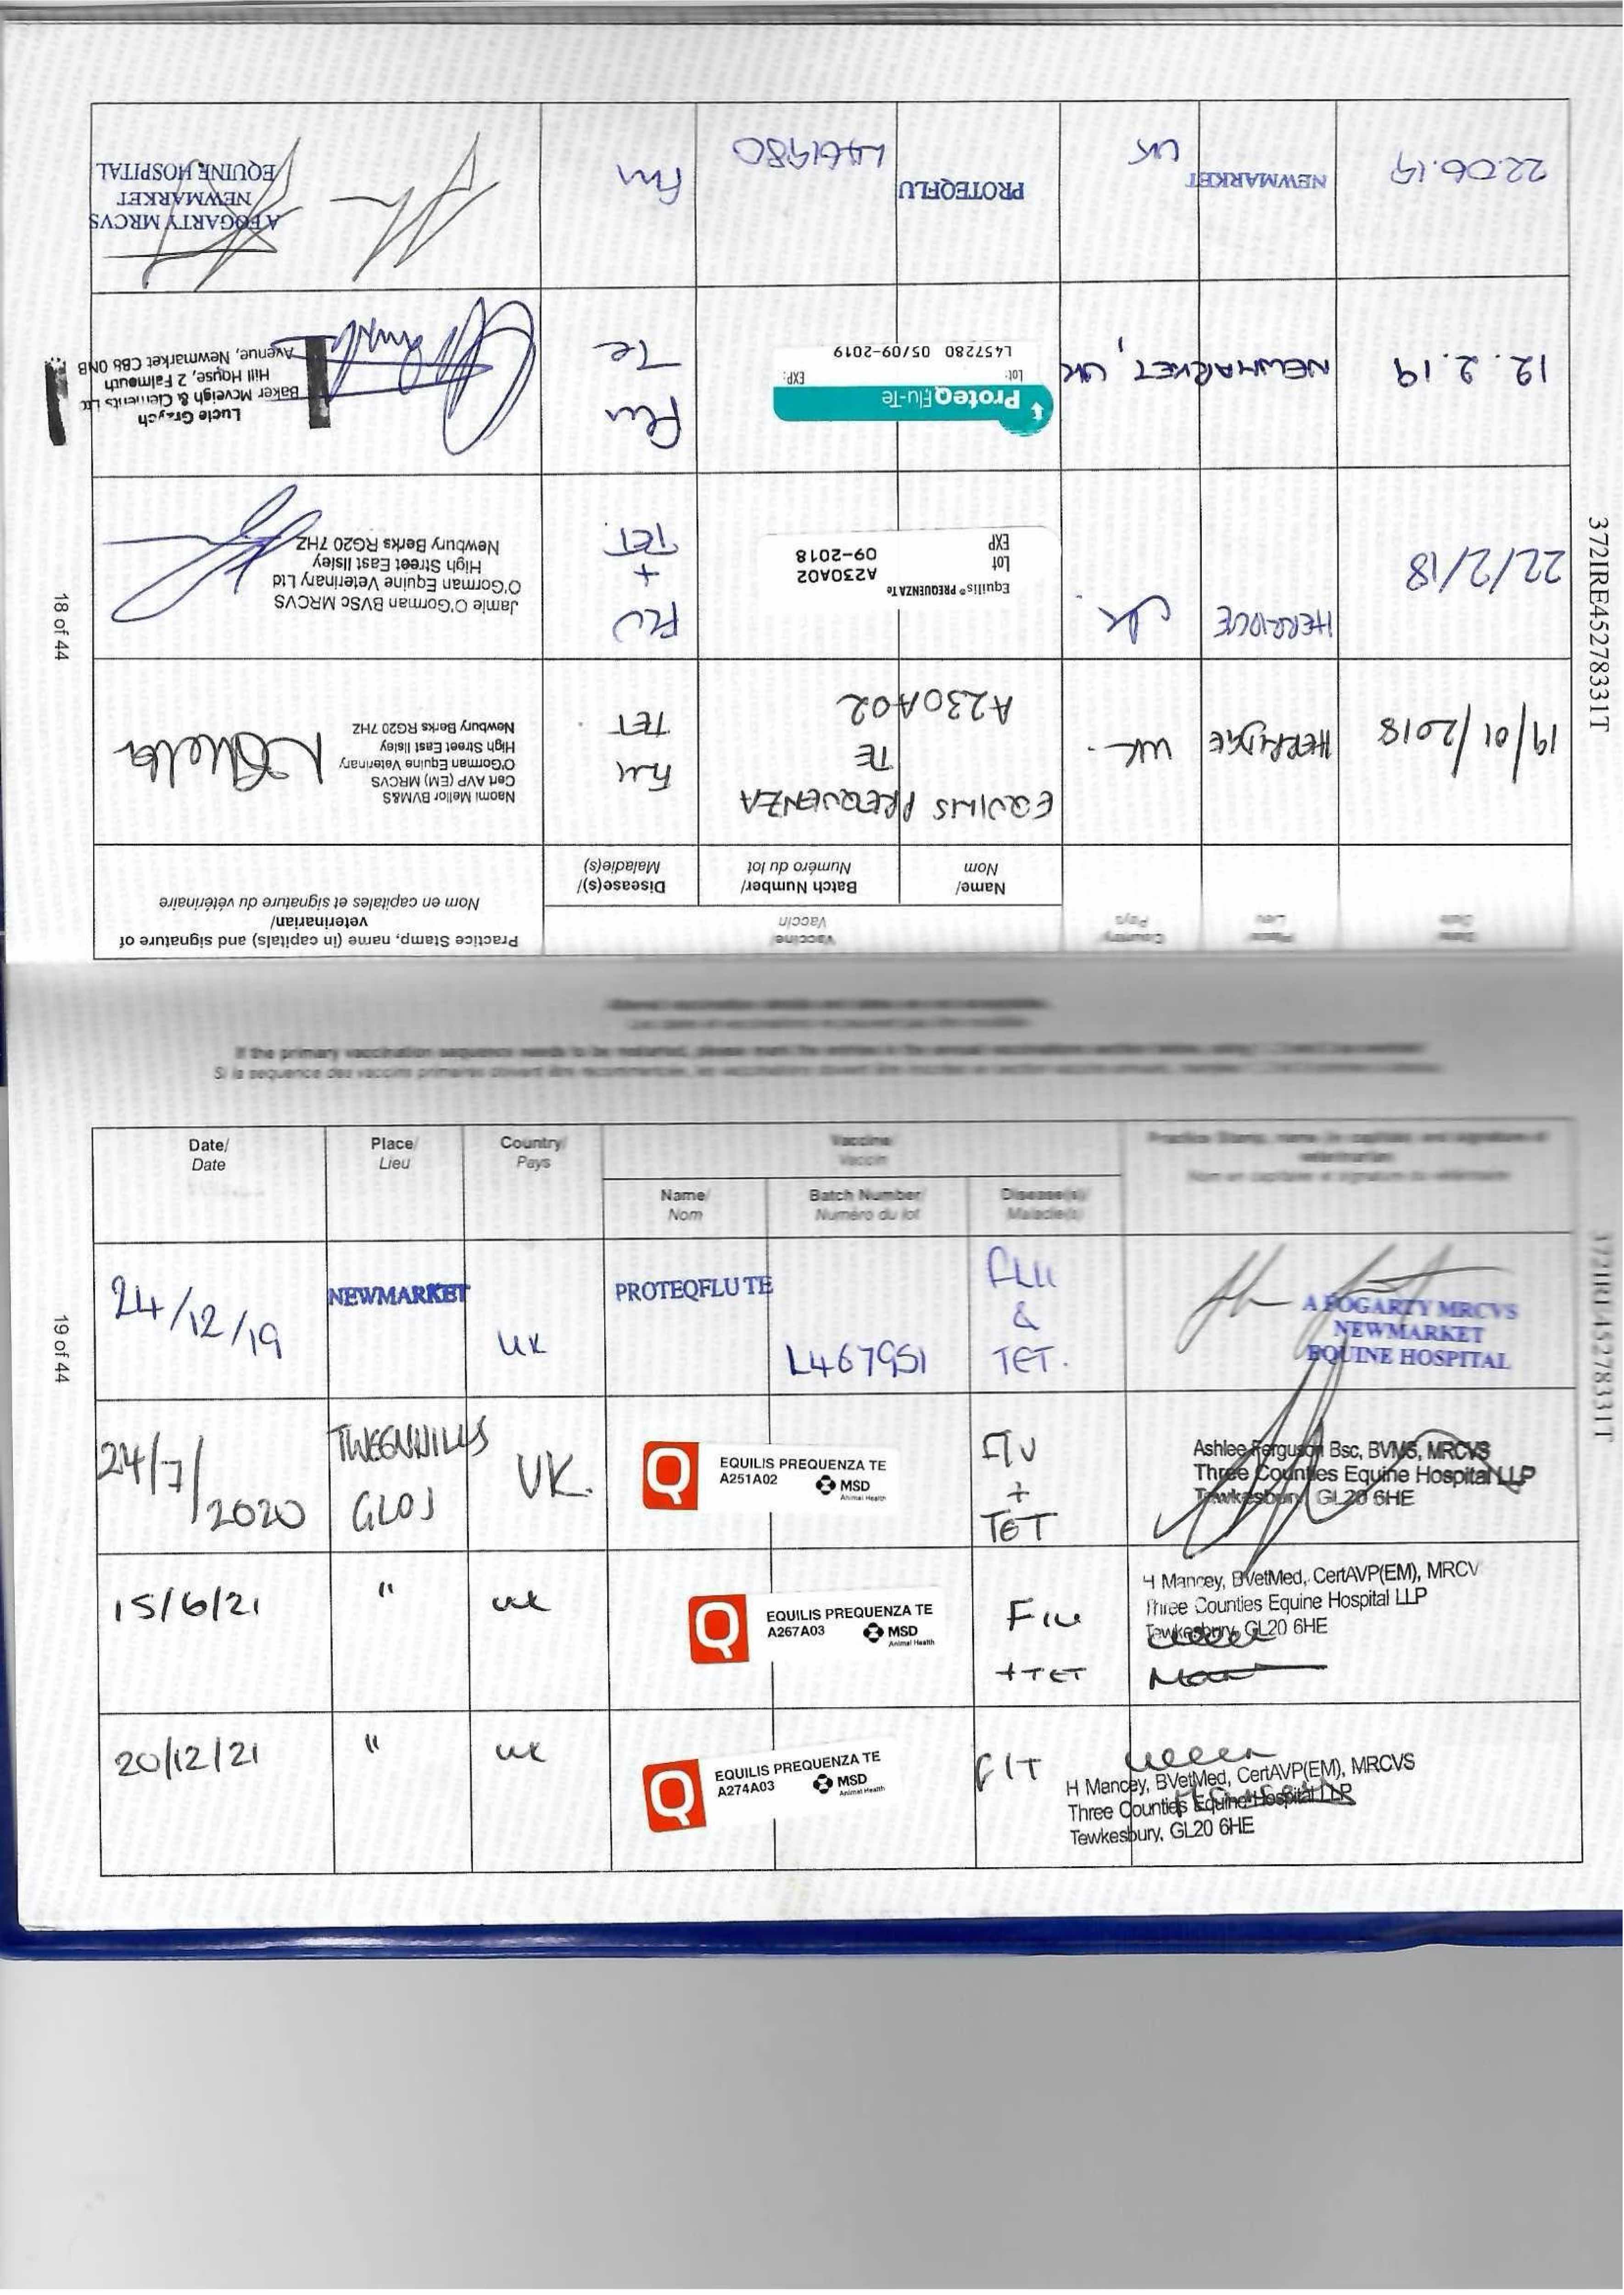 Date/
Date
Place/
Lieu
Country/
Pays
Vaccine/
Vaccin
Name/
Nom
Batch Number/
Numéro du lot
Disease(s)/
Maladie(s)
Practice Stamp, name (in capitals) and signature of
veterinarian/
Nom en capitales et signature du vétérinaire
19/01/2018
HERRIDGE
UK
EQUILIS PREQUENZA
TE
A230A02
FLU
TET
Naomi Mellor BVM&S
Cert AVP (EM) MRCVS
O'Gorman Equine Veterinary
High Street East Ilsley
Newbury Berks RG20 7HZ
22/2/18
HERRIDGE
UK
Equilis® PREQUENZA Te
Lot A230A02
EXP 09-2018
FLU
+
TET
Jamie O'Gorman BVSc MRCVS
O'Gorman Equine Veterinary Ltd
High Street East Ilsley
Newbury Berks RG20 7HZ
12.2.19
NEWMARKET, UK
ProteqFlu-Te
Lot: EXP:
L457280 05/09-2019
Flu
Te
Lucie Grzych
Baker Mcveigh & Clements Ltd
Hill House, 2 Falmouth
Avenue, Newmarket CB8 0NB
22.06.19
NEWMARKET
UK
PROTEQFLU
L461980
Flu
A FOGARTY MRCVS
NEWMARKET
EQUINE HOSPITAL
372IRE45278331T
18 of 44
If the primary vaccination sequence needs to be restarted, please mark the entries in the annual vaccinations section below, using
Date/
Date
Place/
Lieu
Country/
Pays
Vaccine/
Vaccin
Name/
Nom
Batch Number/
Numéro du lot
Disease(s)/
Maladie(s)
Practice Stamp, name (in capitals) and signature of
veterinarian/
Nom en capitales et signature du vétérinaire
24/12/19
NEWMARKET
UK
PROTEQFLU TE
L467951
FLU
&
TET.
A FOGARTY MRCVS
NEWMARKET
EQUINE HOSPITAL
24/7/
2020
GLOS
UK.
Q
EQUILIS PREQUENZA TE
A251A02
MSD
Animal Health
FLU
+
TET
Ashlee Ferguson Bsc, BVMS, MRCVS
Three Counties Equine Hospital LLP
Tewkesbury, GL20 6HE
15/6/21
"
UK
Q
EQUILIS PREQUENZA TE
A267A03
MSD
Animal Health
FLU
+TET
H Mancey, BVetMed, CertAVP(EM), MRCV
Three Counties Equine Hospital LLP
Tewkesbury, GL20 6HE
20/12/21
"
UK
Q
EQUILIS PREQUENZA TE
A274A03
MSD
Animal Health
F/T
H Mancey, BVetMed, CertAVP(EM), MRCVS
Three Counties Equine Hospital LLP
Tewkesbury, GL20 6HE
372IRE45278331T
19 of 44